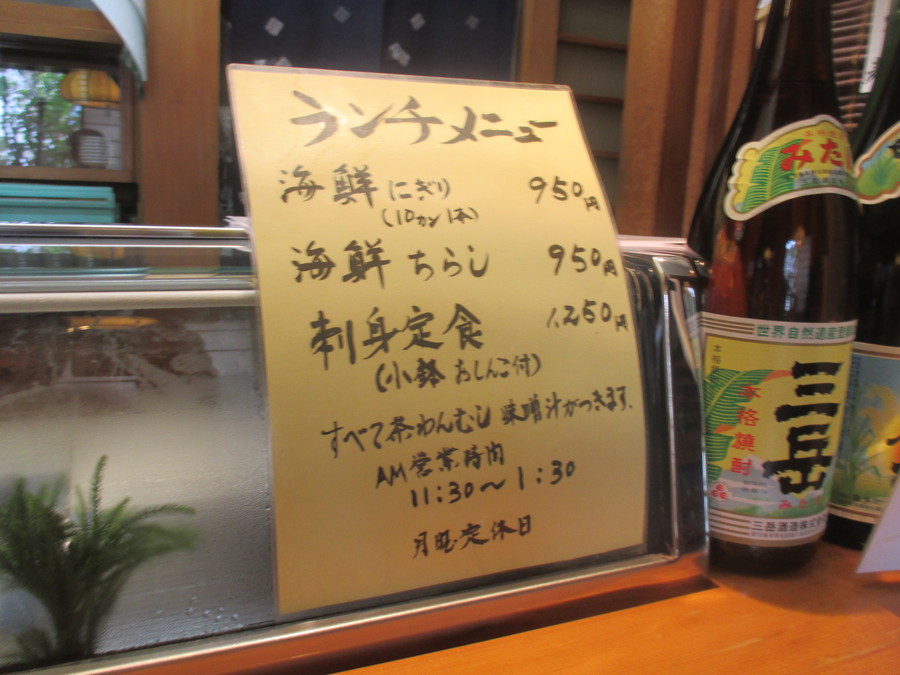 ランチメニュー
海鮮にぎり 950円
(10カン1本)
海鮮ちらし 950円
刺身定食 1,250円
(小鉢 おしんこ付)
すべて茶わんむし 味噌汁がつきます.
AM営業時間
11:30～1:30
月曜定休日
みたけ
世界自然遺産
三岳
本格焼酎
三岳酒造株式